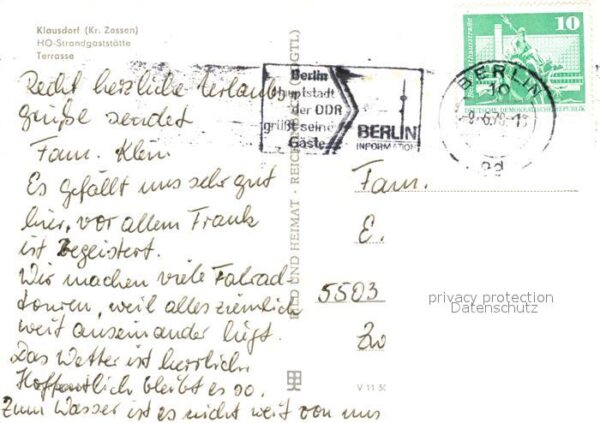 Klausdorf (Kr. Zossen)
HO-Strandgaststätte
Terrasse
Recht herzliche Urlaubs
grüße sendet
Fam. Klein
Es gefällt uns sehr gut
hier, vor allem Frank
ist begeistert.
Wir machen viele Fahrrad-
touren, weil alles ziemlich
weit auseinander liegt.
Das Wetter ist herrlich
Hoffentlich bleibt es so.
Zum Wasser ist es nicht weit von uns
BILD UND HEIMAT · REICHENBACH (VOGTL)
Berlin
Hauptstadt
der DDR
grüßt seine
Gäste
BERLIN
INFORMATION
10
DEUTSCHE DEMOKRATISCHE REPUBLIK
BERLIN
10
Fam.
E.
5503
Zw
privacy protection
Datenschutz
V 11 50